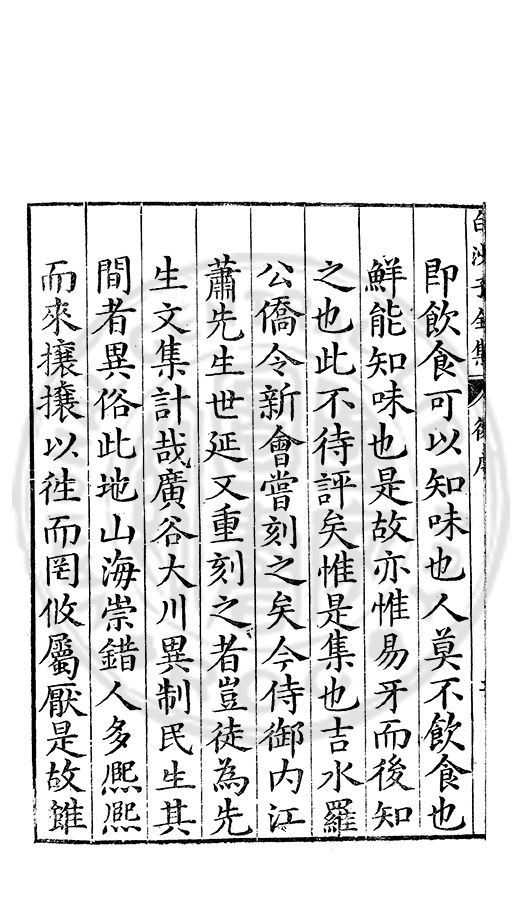 白沙子全集 後序
即飲食可以知味也人莫不飲食也
鮮能知味也是故亦惟易牙而後知
之也此不待評矣惟是集也吉水羅
公僑令新會嘗刻之矣今侍御内江
蕭先生世延又重刻之者豈徒為先
生文集計哉廣谷大川異制民生其
間者異俗此地山海崇錯人多熈熈
而來攘攘以徃而罔攸屬厭是故雖